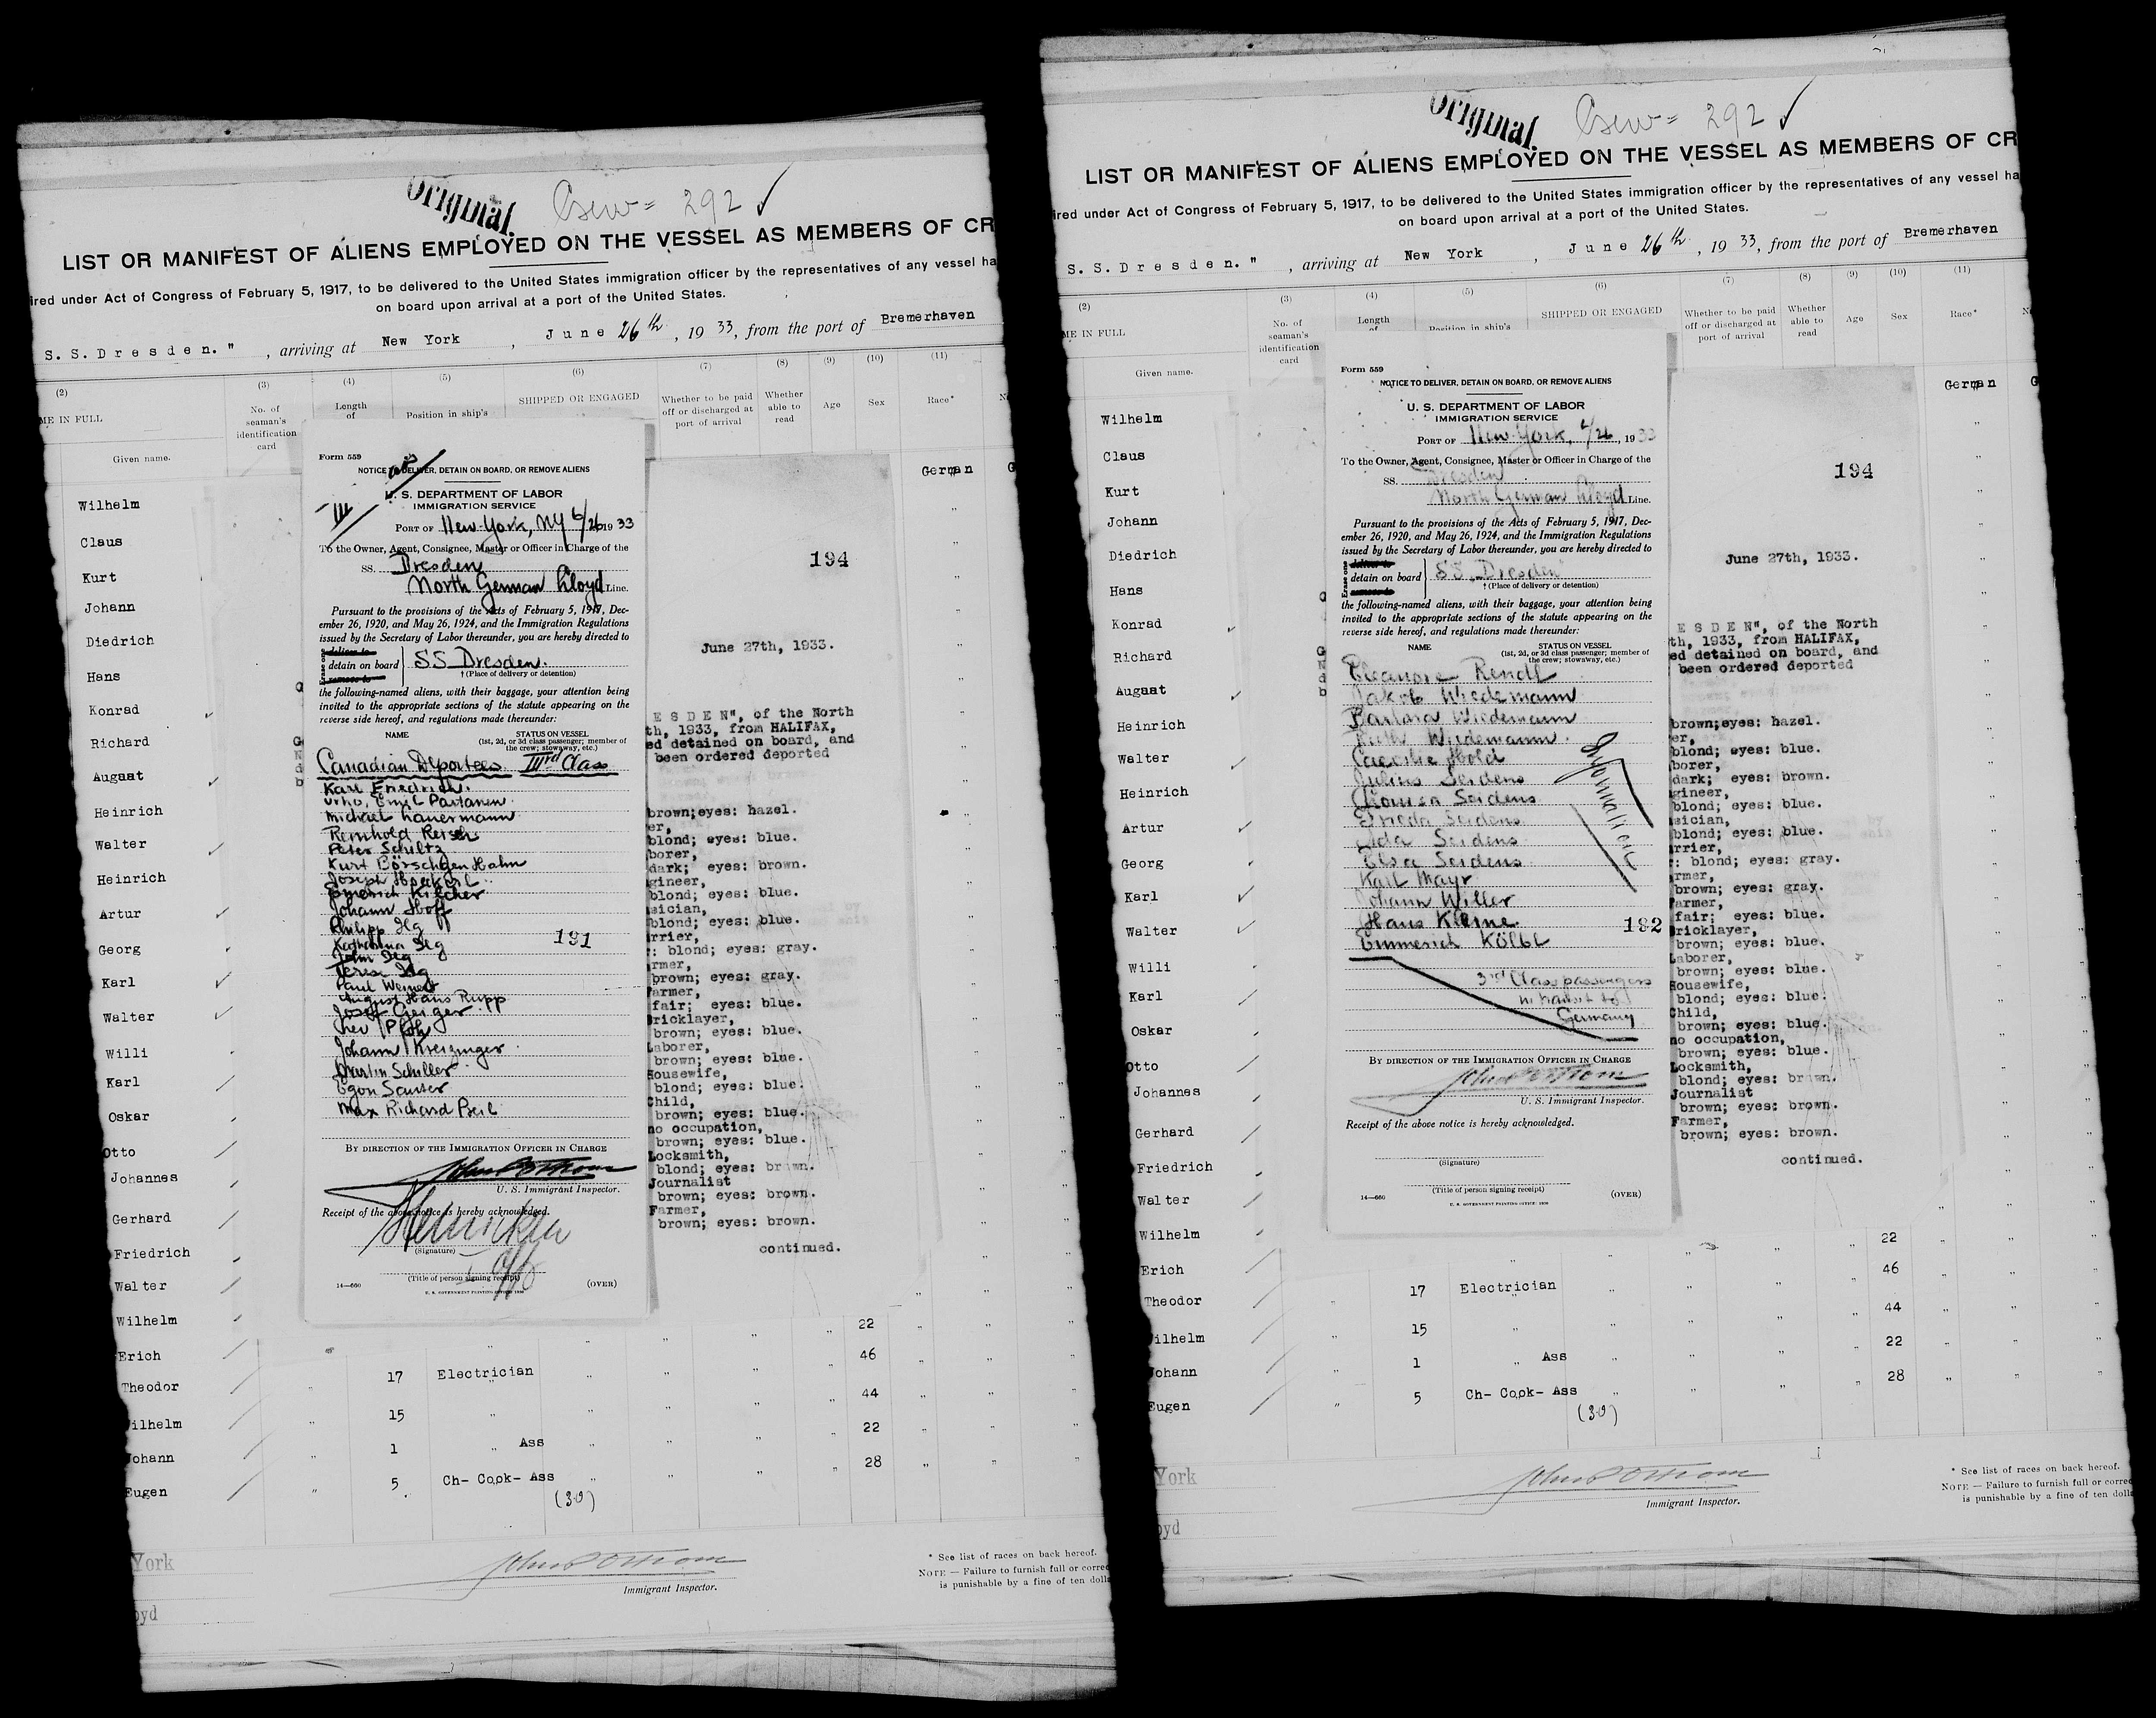 Original.
Crew = 292 ✓
LIST OR MANIFEST OF ALIENS EMPLOYED ON THE VESSEL AS MEMBERS OF CR
ired under Act of Congress of February 5, 1917, to be delivered to the United States immigration officer by the representatives of any vessel ha
on board upon arrival at a port of the United States.
S. S. D r e s d e n. " , arriving at New York , J u n e 26th , 19 33, from the port of Bremerhaven
(2) (3) (4) (5) (6) (7) (8) (9) (10) (11)
ME IN FULL
Given name.
No. of seaman's identification card
Length of
Position in ship's
SHIPPED OR ENGAGED
Whether to be paid off or discharged at port of arrival
Whether able to read
Age
Sex
Race*
German
Wilhelm
Claus
Kurt
Johann
Diedrich
Hans
Konrad
Richard
August
Heinrich
Walter
Heinrich
Artur
Georg
Karl
Walter
Willi
Karl
Oskar
Otto
Johannes
Gerhard
Friedrich
Walter
Wilhelm
Erich
Theodor
ilhelm
ohann
Eugen
Form 559
NOTICE TO DELIVER, DETAIN ON BOARD, OR REMOVE ALIENS
U. S. DEPARTMENT OF LABOR
IMMIGRATION SERVICE
III
PORT OF New York, NY 6/26 19 33
To the Owner, Agent, Consignee, Master or Officer in Charge of the
SS. Dresden
North German Lloyd Line.
Pursuant to the provisions of the Acts of February 5, 1917, Dec-
ember 26, 1920, and May 26, 1924, and the Immigration Regulations
issued by the Secretary of Labor thereunder, you are hereby directed to
Erase one
deliver to
detain on board SS Dresden.
remove to
† (Place of delivery or detention)
the following-named aliens, with their baggage, your attention being
invited to the appropriate sections of the statute appearing on the
reverse side hereof, and regulations made thereunder:
NAME STATUS ON VESSEL
(1st, 2d, or 3d class passenger; member of the crew; stowaway, etc.)
Canadian Deportees IIIrd Class
Karl Friedrich.
Urho, Emil Partanen
Michael Lauermann
Reinhold Reisch
Peter Schiltz
Kurt Börschgen Hahn
Joseph
Kilcher
Johann Hoff
Philipp Ilg
Katharina Ilg
John Ilg
Terese Ilg
Paul Weinert
August Hans Rupp
Josef Geiger
Johann Kreizinger
Martin Schiller
Egon Sauter
Max Richard Beil
191
BY DIRECTION OF THE IMMIGRATION OFFICER IN CHARGE
U. S. Immigrant Inspector.
Receipt of the above notice is hereby acknowledged.
(Signature)
(Title of person signing receipt)
14—660 (OVER)
U. S. GOVERNMENT PRINTING OFFICE: 1930
194
June 27th, 1933.
E S D E N", of the North
th, 1933, from HALIFAX,
ed detained on board, and
been ordered deported
brown;eyes: hazel.
er,
blond; eyes: blue.
borer,
dark; eyes: brown.
gineer,
blond; eyes: blue.
sician,
blond; eyes: blue.
rrier,
: blond; eyes: gray.
rmer,
brown; eyes: gray.
armer,
fair; eyes: blue.
ricklayer,
brown; eyes: blue.
Laborer,
brown; eyes: blue.
Housewife,
blond; eyes: blue.
Child,
brown; eyes: blue.
no occupation,
brown; eyes: blue.
Locksmith,
blond; eyes: brown.
Journalist
brown; eyes: brown.
Farmer,
brown; eyes: brown.
continued.
22
46
17 Electrician 44
15 " 22
1 " Ass 28
5 Ch- Cook- Ass
(30)
York
oyd
Immigrant Inspector.
* See list of races on back hereof.
NOTE — Failure to furnish full or correc
is punishable by a fine of ten doll
Original.
Crew = 292 ✓
LIST OR MANIFEST OF ALIENS EMPLOYED ON THE VESSEL AS MEMBERS OF CR
ired under Act of Congress of February 5, 1917, to be delivered to the United States immigration officer by the representatives of any vessel ha
on board upon arrival at a port of the United States.
S. S. D r e s d e n. " , arriving at New York , J u n e 26th , 19 33, from the port of Bremerhaven
(2) (3) (4) (5) (6) (7) (8) (9) (10) (11)
ME IN FULL
Given name.
No. of seaman's identification card
Length of
Position in ship's
SHIPPED OR ENGAGED
Whether to be paid off or discharged at port of arrival
Whether able to read
Age
Sex
Race*
German
Wilhelm
Claus
Kurt
Johann
Diedrich
Hans
Konrad
Richard
August
Heinrich
Walter
Heinrich
Artur
Georg
Karl
Walter
Willi
Karl
Oskar
Otto
Johannes
Gerhard
Friedrich
Walter
Wilhelm
Erich
Theodor
ilhelm
ohann
Eugen
Form 559
NOTICE TO DELIVER, DETAIN ON BOARD, OR REMOVE ALIENS
U. S. DEPARTMENT OF LABOR
IMMIGRATION SERVICE
PORT OF New York, 6/26, 19 33
To the Owner, Agent, Consignee, Master or Officer in Charge of the
SS. Dresden
North German Lloyd Line.
Pursuant to the provisions of the Acts of February 5, 1917, Dec-
ember 26, 1920, and May 26, 1924, and the Immigration Regulations
issued by the Secretary of Labor thereunder, you are hereby directed to
Erase one
deliver to
detain on board SS. "Dresden"
remove to
† (Place of delivery or detention)
the following-named aliens, with their baggage, your attention being
invited to the appropriate sections of the statute appearing on the
reverse side hereof, and regulations made thereunder:
NAME STATUS ON VESSEL
(1st, 2d, or 3d class passenger; member of the crew; stowaway, etc.)
Eleanore Rendl
Jakob Wiedemann
Barbara Wiedemann
Ruth Wiedemann.
Caecilie Hold
Julius Seidens
Seidens
Frieda Seidens
Lida Seidens
Elsa Seidens
Karl Mayr
Johann Willer
Hans Kleine.
Emmerich Kölbl
192
3rd Class passengers
in transit to
Germany
BY DIRECTION OF THE IMMIGRATION OFFICER IN CHARGE
U. S. Immigrant Inspector.
Receipt of the above notice is hereby acknowledged.
(Signature)
(Title of person signing receipt)
14—660 (OVER)
U. S. GOVERNMENT PRINTING OFFICE: 1930
194
June 27th, 1933.
E S D E N", of the North
th, 1933, from HALIFAX,
ed detained on board, and
been ordered deported
brown;eyes: hazel.
er,
blond; eyes: blue.
borer,
dark; eyes: brown.
gineer,
blond; eyes: blue.
sician,
blond; eyes: blue.
rrier,
: blond; eyes: gray.
rmer,
brown; eyes: gray.
armer,
fair; eyes: blue.
ricklayer,
brown; eyes: blue.
Laborer,
brown; eyes: blue.
Housewife,
blond; eyes: blue.
Child,
brown; eyes: blue.
no occupation,
brown; eyes: blue.
Locksmith,
blond; eyes: brown.
Journalist
brown; eyes: brown.
Farmer,
brown; eyes: brown.
continued.
22
46
17 Electrician 44
15 " 22
1 " Ass 28
5 Ch- Cook- Ass
(30)
York
oyd
Immigrant Inspector.
* See list of races on back hereof.
NOTE — Failure to furnish full or correc
is punishable by a fine of ten doll